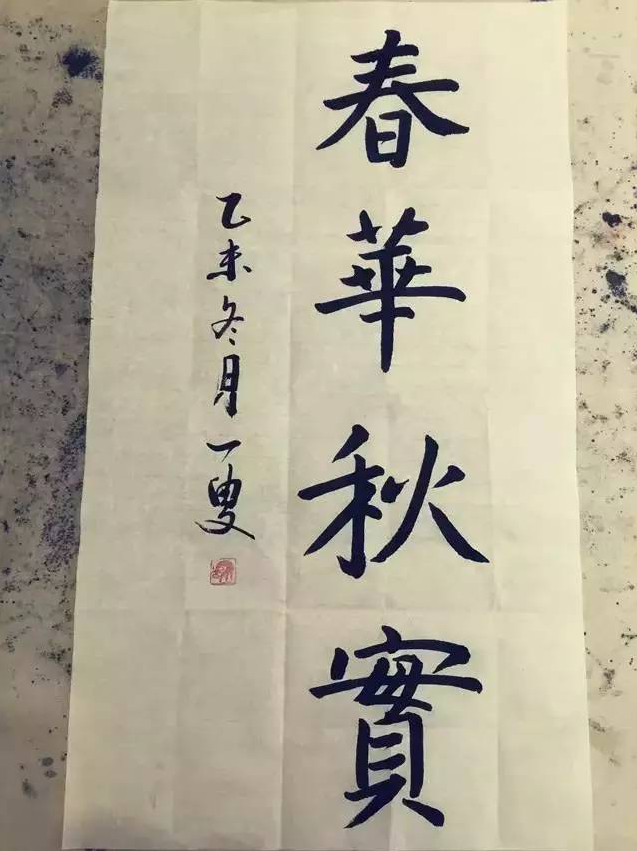 春華秋實
乙未冬月一叟